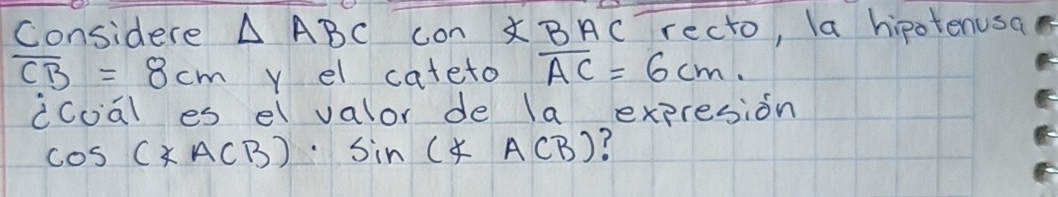 Considere Δ ABC con ∡ BAC recto, la hipotenusa
CB = 8cm y el cateto AC = 6cm.
¿Cuál es el valor de la expresión
cos (∡ ACB) · Sin (∡ ACB)?